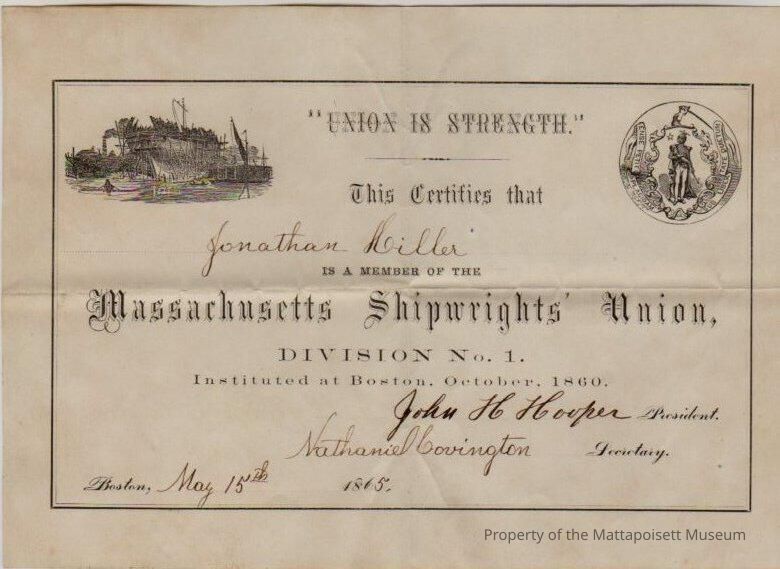 "UNION IS STRENGTH."
This Certifies that
Jonathan Hiller
IS A MEMBER OF THE
Massachusetts Shipwrights' Union,
DIVISION No. 1.
Instituted at Boston, October, 1860.
John H Hooper President.
Nathaniel Covington Secretary.
Boston, May 15th 1865.
Property of the Mattapoisett Museum